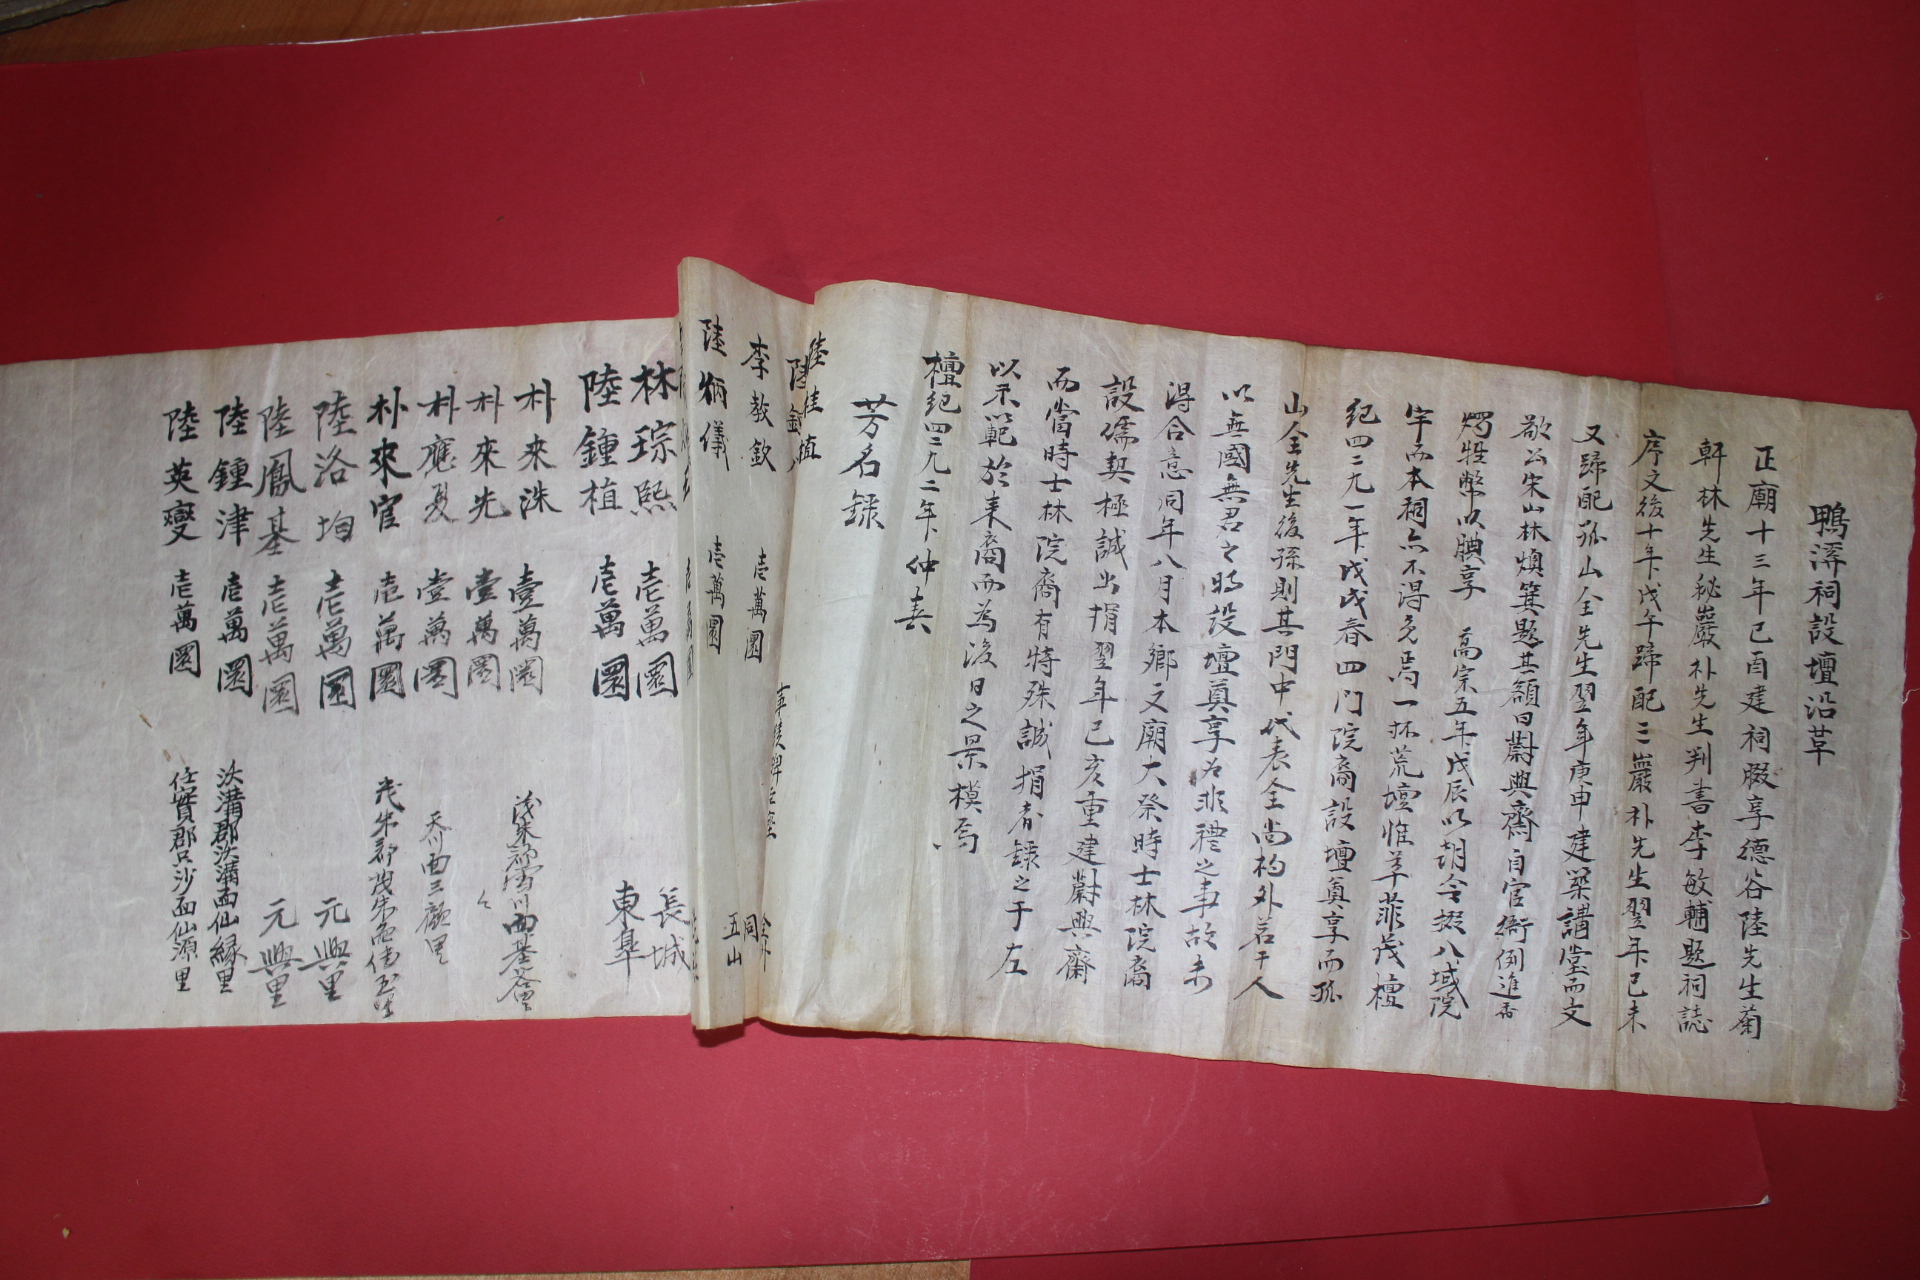 鴨濟祠設壇沿革
正廟十三年己酉建祠腏享德谷陸先生菊
軒林先生秘巖朴先生判書李敏輔題祠誌
序文後十年戊午躋配三巖朴先生翌年己未
又躋配孤山全先生翌年庚申建築講堂而文
敬公宋山林煥箕題其額曰蔚興齋自官衙例進香
燭牲幣以腆享 高宗五年戊辰以朝令掇八域院
宇而本祠亦不得免焉一抔荒壇惟草菲茂檀
紀四二九一年戊戌春四门院裔設壇奠享而孤
山全先生後孫則其門中代表全尚杓外若干人
以無國無君之時設壇奠享为非禮之事故未
得合意同年八月本鄉文廟大祭時士林院裔
設儒契極誠出捐翌年己亥重建蔚興齋
而當時士林院裔有特殊誠捐者錄之于左
以示範於來裔而為後日之景模焉
檀紀四二九二年 仲春
芳名錄
陸 植
李教欽 壱萬圜 同
陸炳儀 壱萬圜 五山
林琮熙 壱萬圜 長城
陸鍾植 壱萬圜 東皐
朴來洙 壹萬圜
朴來先 壹萬圜
朴應夏 壹萬圜
朴來官 壱萬圜
陸洛均 壱萬圜 元興里
陸鳳基 壱萬圜 元興里
陸鍾津 壱萬圜 沃溝郡沃溝面仙緣里
陸英燮 壱萬圜 任實郡只沙面仙源里